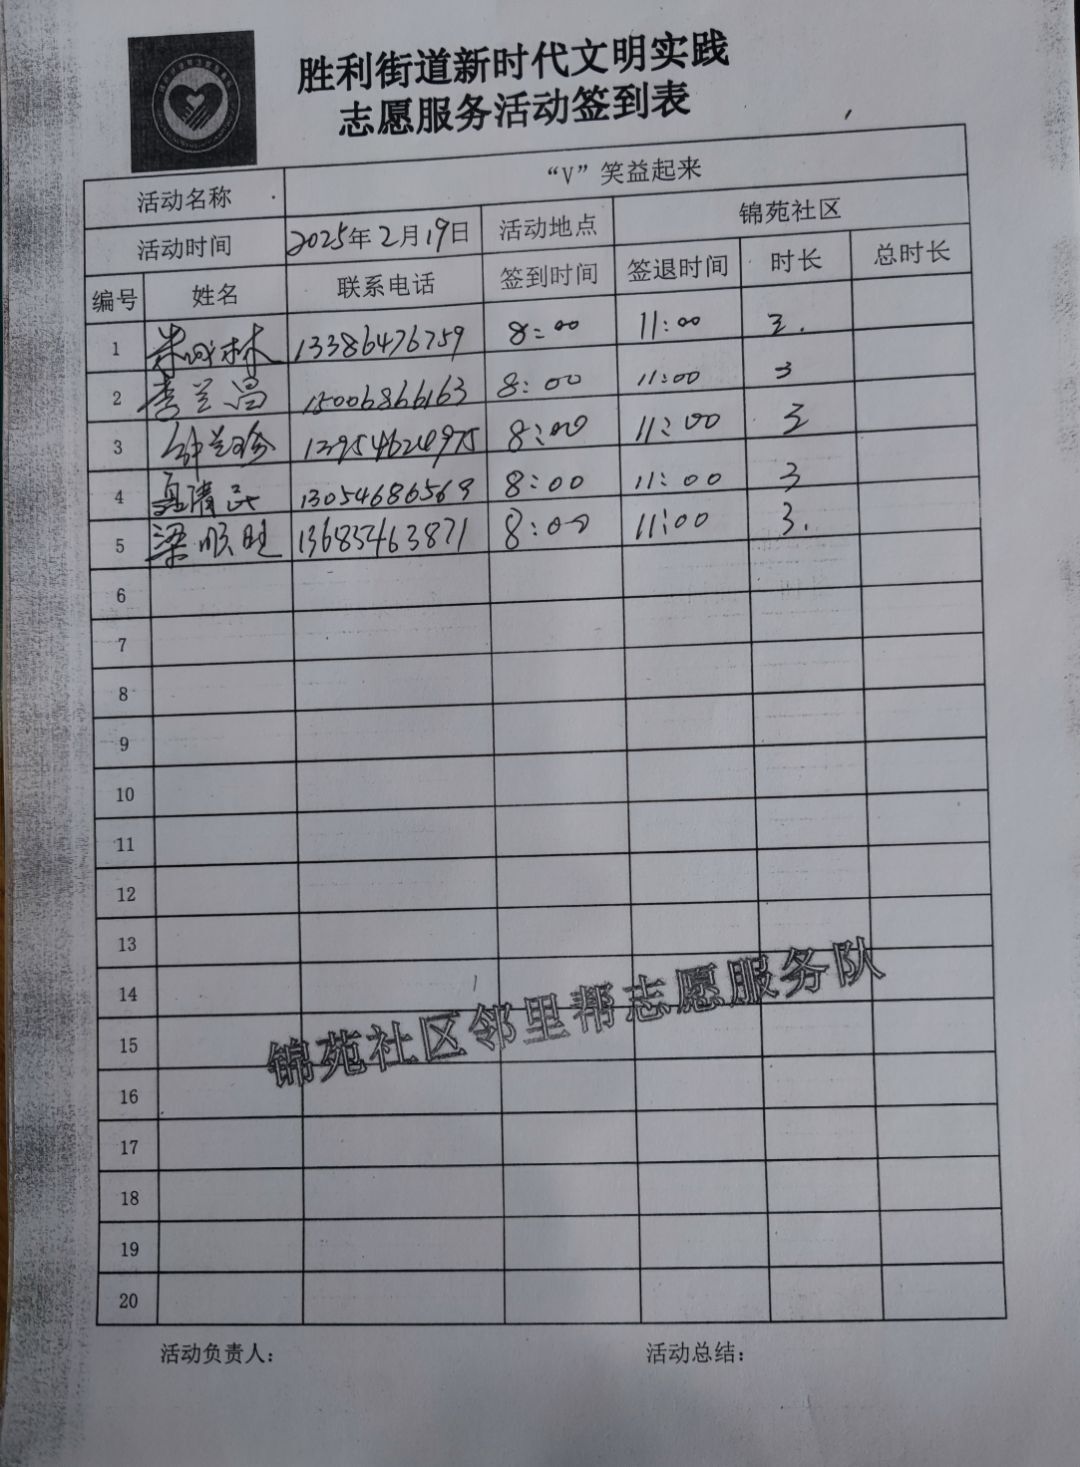 胜利街道新时代文明实践
志愿服务活动签到表
活动名称 “V”笑益起来
活动时间 2025年2月19日 活动地点 锦苑社区
编号 姓名 联系电话 签到时间 签退时间 时长 总时长
1 林 13386476759 8:00 11:00 3.
2 李兰昌 15006866163 8:00 11:00 3
3 钟兰珍 13954624975 8:00 11:00 3
4 夏清民 13054686569 8:00 11:00 3
5 梁顺旺 13685463871 8:00 11:00 3.
6
7
8
9
10
11
12
13
14
15
16
17
18
19
20
锦苑社区邻里帮志愿服务队
活动负责人： 活动总结：